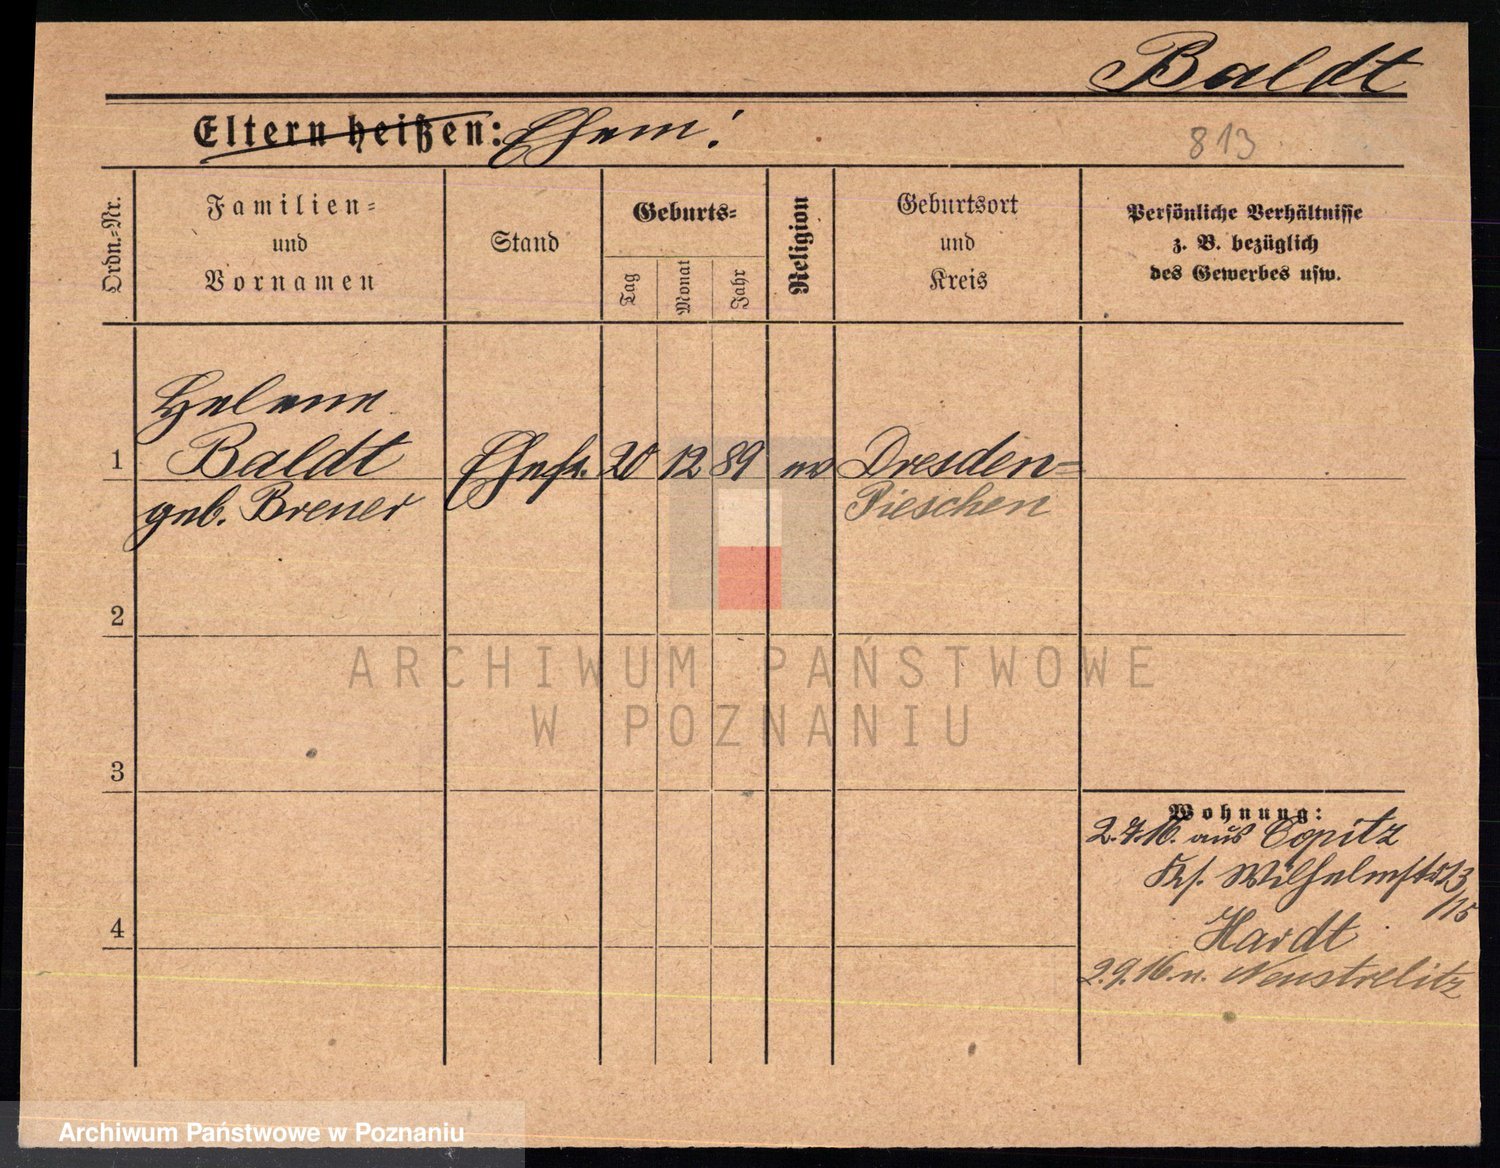 Baldt
Eltern heißen: Ehem:
813
Ordn.-Nr.
Familien-
und
Vornamen
Stand
Geburts-
Tag
Monat
Jahr
Religion
Geburtsort
und
Kreis
Persönliche Verhältnisse
z. B. bezüglich
des Gewerbes usw.
Helene
1 Baldt Ehefr. 20 12 89 ev Dresden-
geb. Brener Pieschen
2
ARCHIWUM PAŃSTWOWE
W POZNANIU
3
Wohnung:
2.7.16. aus Copitz
Wilhelmstr 13
/15
4 Hardt
2.9.16. n. Neustrelitz
Archiwum Państwowe w Poznaniu